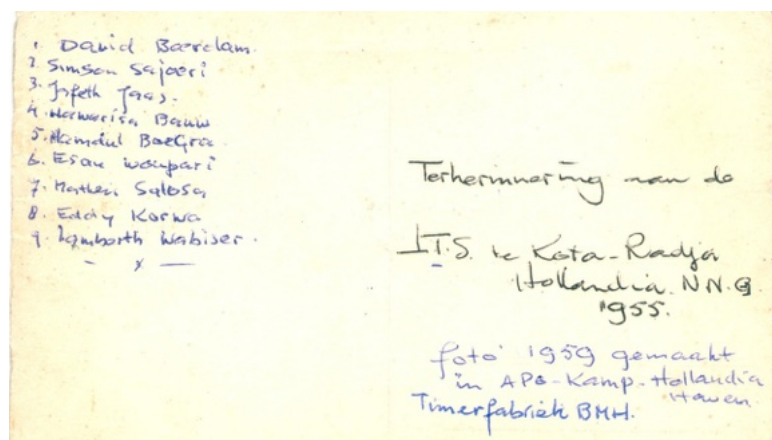 1. David Boerdam.
2. Simson Sajori
3. Jafeth Jaas.
4. Hawarisa Bauw
5. Hamdul BaeGra
6. Esau Woupari
7. Matheis Salosa
8. Eddy Korwa
9. Lamborth Wabiser.
- x -
Terherinnering aan de
I.T.S. te Kota-Radja
Hollandia. N.N.G
1955.
foto 1959 gemaakt
in APO-Kamp-Hollandia
Haven.
Timerfabriek BMH.